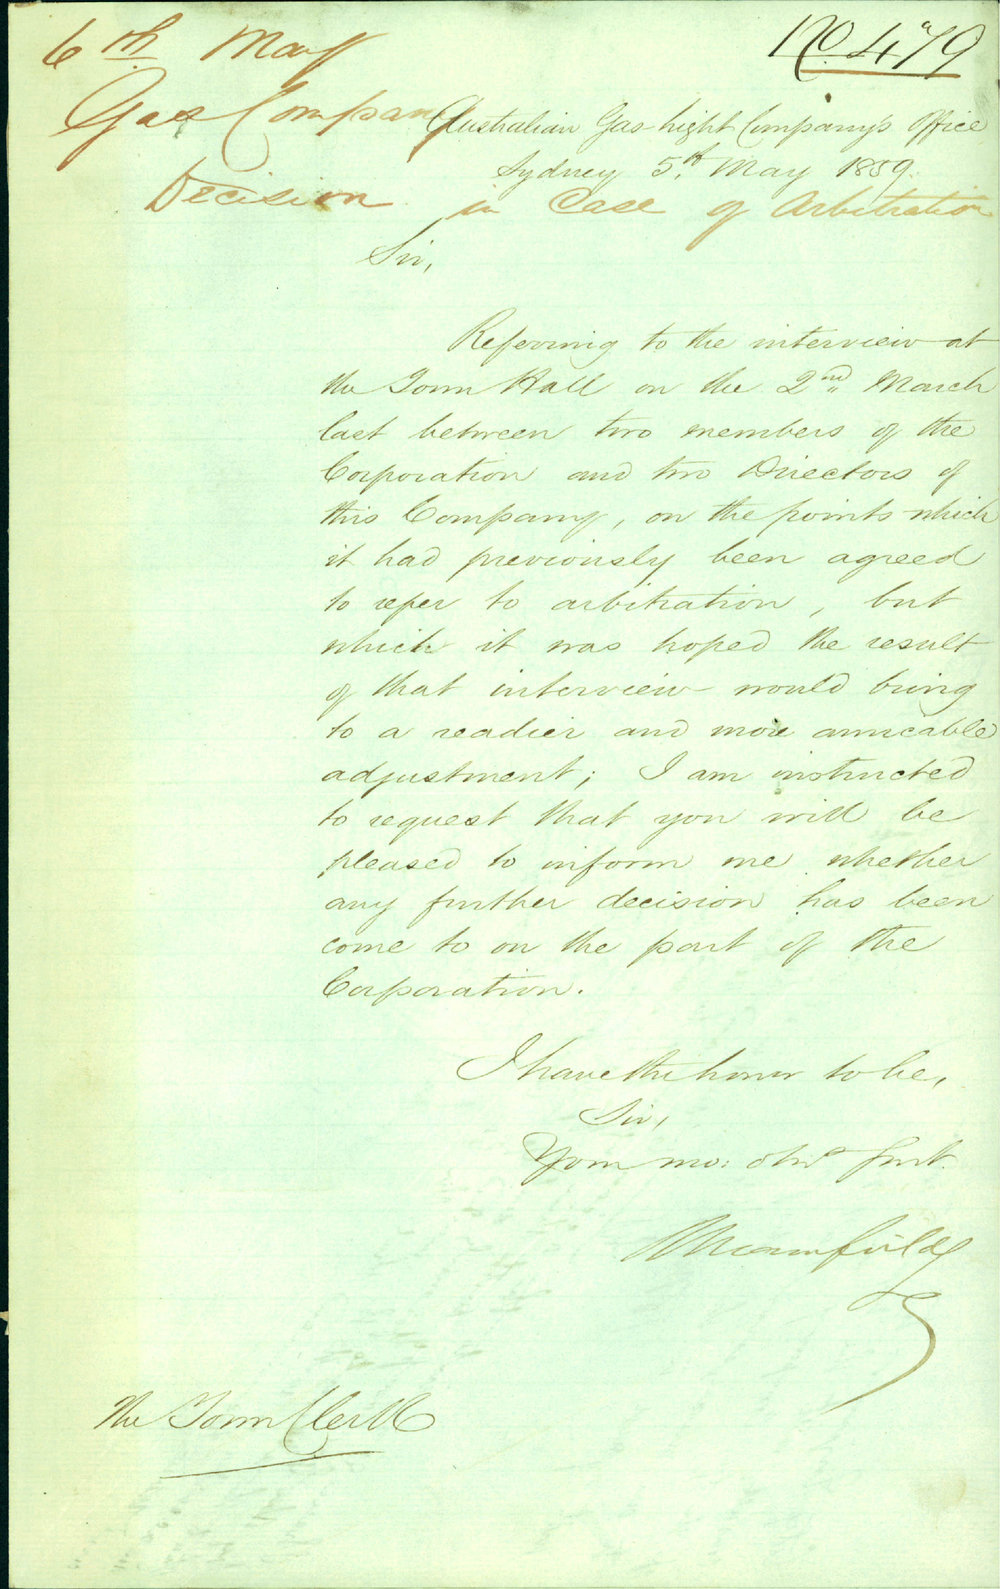 6th May
No 479
Gas Company
Australian Gas Light Company's Office
Sydney 5th May 1859.
Decision in Case of Arbitration
Sir,
Referring to the interview at
the Town Hall on the 2nd March
last between two members of the
Corporation and two Directors of
this Company, on the points which
it had previously been agreed
to refer to arbitration, but
which it was hoped the result
of that interview would bring
to a readier and more amicable
adjustment; I am instructed
to request that you will be
pleased to inform me whether
any further decision has been
come to on the part of the
Corporation.
I have the honor to be,
Sir,
Your mo: obt Servt.
The Town Clerk